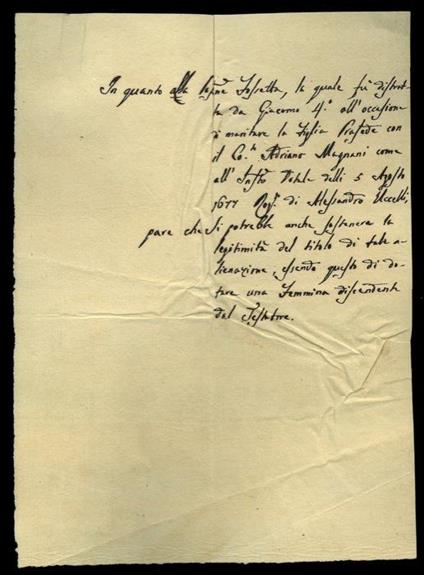 In quanto alla Possne Fossetta, la quale fù distrat-
ta da Giacomo 4.° all'occasione
di maritare la Figlia Prasede con
il Co:te Adriano Magnani come
all' Instro Dotale delli 5 Agosto
1677 Rog.° di Alessandro Uccelli,
pare che si potrebbe anche sostenere la
legitimità del titolo di tale a-
lienazione, essendo questo di do-
tare una Femmina discendente
dal Testatore.